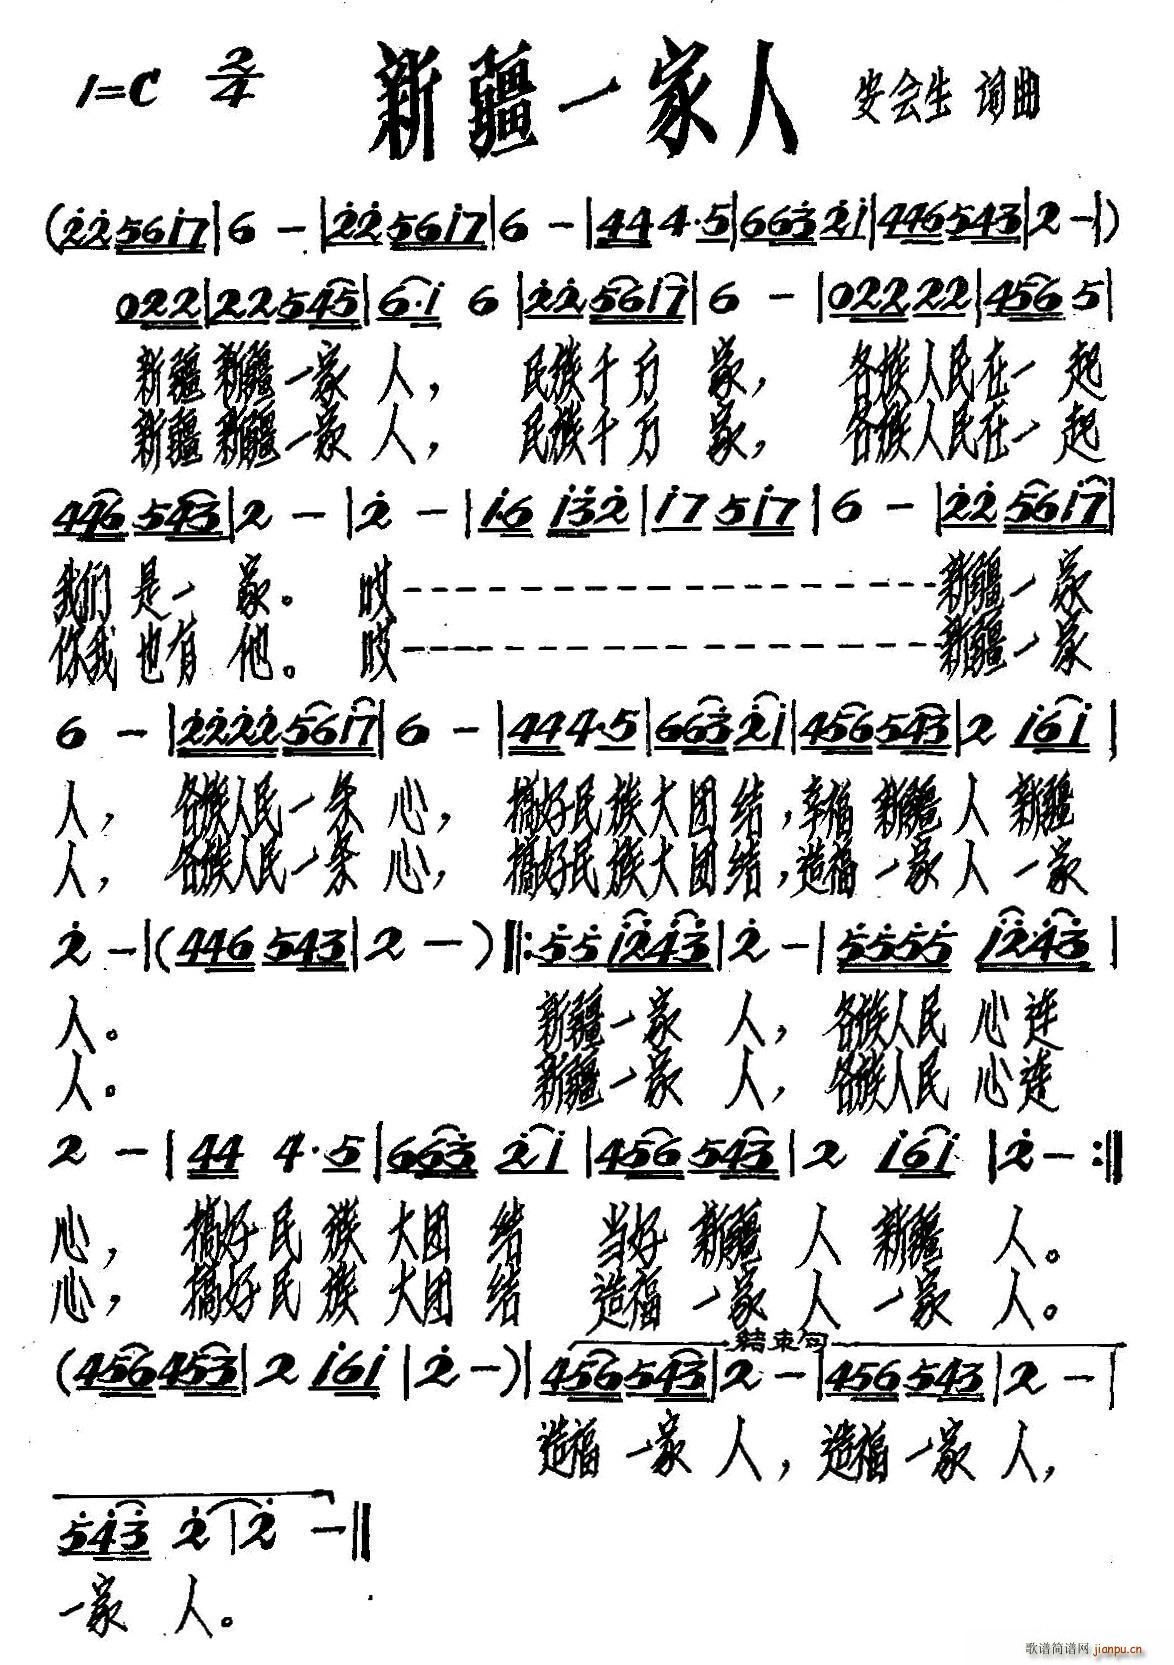 1=C 2/4 新疆一家人 安会生 词曲
(2̇2̇561̇7|6 -|2̇2̇561̇7|6 -|444·5|663̇2̇1̇|446543|2 -|)
022|22545|6·1̇ 6|2̇2̇561̇7|6 -|02222|456 5|
新疆新疆一家人，民族千万家，各族人民在一起
新疆新疆一家人，民族千万家，各族人民在一起
446 543|2 -|2̇ -|1̇6 1̇3̇2̇|1̇7 51̇7|6 -|2̇2̇561̇7|
我们是一家。哎---------------新疆一家
你我也有他。哎---------------新疆一家
6 -|2̇2̇2̇2̇561̇7|6 -|444·5|663̇2̇1̇|456543|2 1̇61̇|
人，各族人民一条心，搞好民族大团结，幸福新疆人新疆
人，各族人民一条心，搞好民族大团结，造福一家人一家
2̇ -|(446 543|2 -)‖:5̇5̇1̇2̇4̇3̇|2̇ -|5̇5̇5̇5̇ 1̇2̇4̇3̇|
人。 新疆一家人，各族人民心连
人。 新疆一家人，各族人民心连
2 -|44 4·5|663̇ 2̇1̇|456543|2 1̇61̇|2̇ -:‖
心，搞好民族大团结 当好新疆人新疆人。
心，搞好民族大团结 造福一家人一家人。
结束句
(456453|2 1̇61̇|2̇ -)|456543|2 -|456543|2 -|
造福一家人，造福一家人，
5̇4̇3̇ 2̇|2̇ -‖
一家人。
歌谱简谱网 jianpu.cn